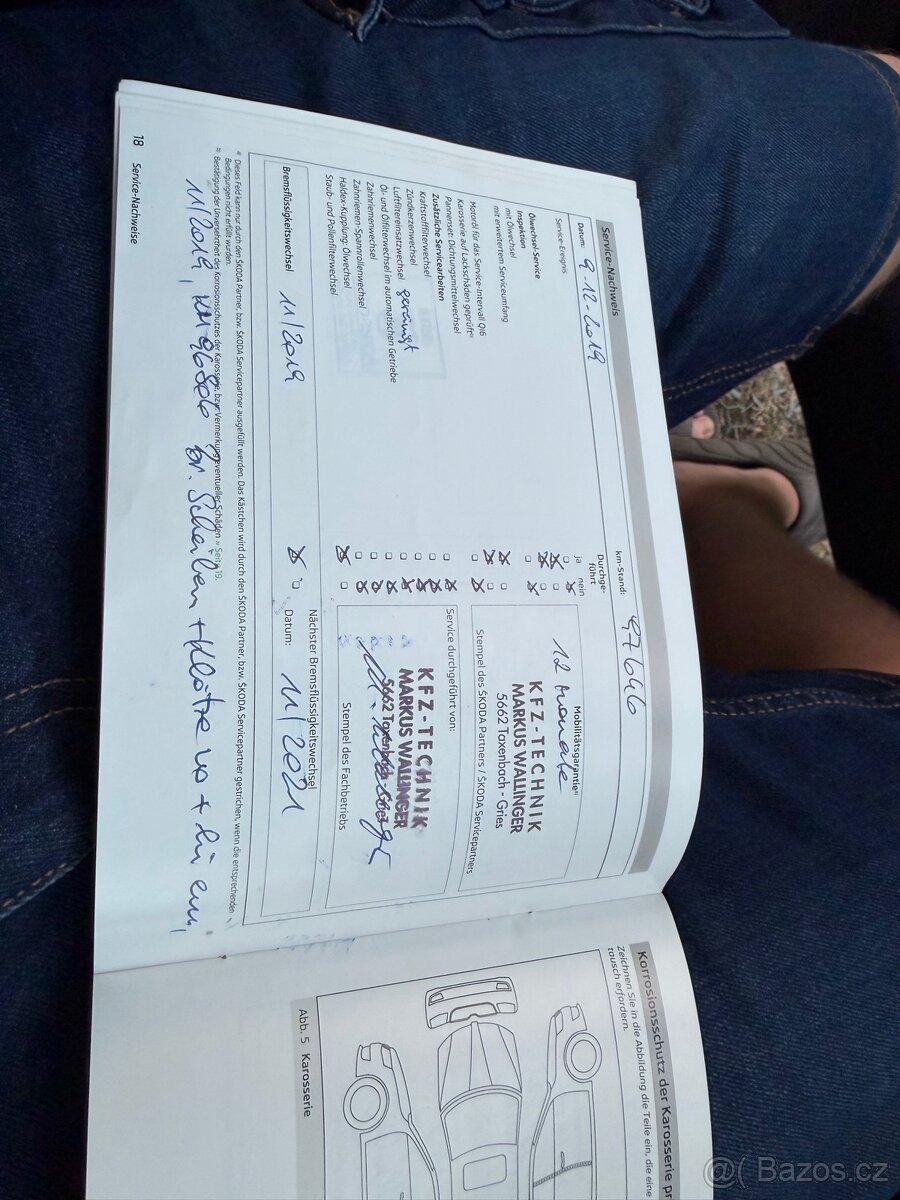 Service-Nachweis
Datum: 9.12.2019
km-Stand: 97646
Service-Ereignis
Durchge-
führt
ja nein
Ölwechsel-Service
Inspektion
mit Ölwechsel
mit erweitertem Serviceumfang
Motoröl für das Service-Intervall QI6
Karosserie auf Lackschäden geprüft
Pannenset: Dichtungsmittelwechsel
Zusätzliche Servicearbeiten
Kraftstofffilterwechsel
Zündkerzenwechsel
Luftfiltereinsatzwechsel gereinigt
Öl- und Ölfilterwechsel im automatischen Getriebe
Zahnriemenwechsel
Zahnriemen-Spannrollenwechsel
Haldex-Kupplung: Ölwechsel
Staub- und Pollenfilterwechsel
Mobilitätsgarantie
12 Monate
KFZ-TECHNIK
MARKUS WALLINGER
5662 Taxenbach - Gries
Stempel des ŠKODA Partners / ŠKODA Servicepartners
Service durchgeführt von:
KFZ-TECHNIK
MARKUS WALLINGER
5662 Taxenbach - Gries
Stempel des Fachbetriebs
Bremsflüssigkeitswechsel 11/2019
Nächster Bremsflüssigkeitswechsel
Datum: 11/2021
Dieses Feld kann nur durch den ŠKODA Partner, bzw. ŠKODA Servicepartner ausgefüllt werden. Das Kästchen wird durch den ŠKODA Partner, bzw. ŠKODA Servicepartner gestrichen, wenn die entsprechenden
Bedingungen nicht erfüllt wurden.
Bestätigung der Unversehrtheit des Korrosionsschutzes der Karosserie, bzw. Vermerkung eventueller Schäden » Seite 19.
11/2019, KM br. Scheiben + Klötze
18 Service-Nachweise
Korrosionsschutz der Karosserie
Zeichnen Sie in die Abbildung die Teile ein, die eine
tausch erfordern.
Abb. 5 Karosserie
@( Bazos.cz